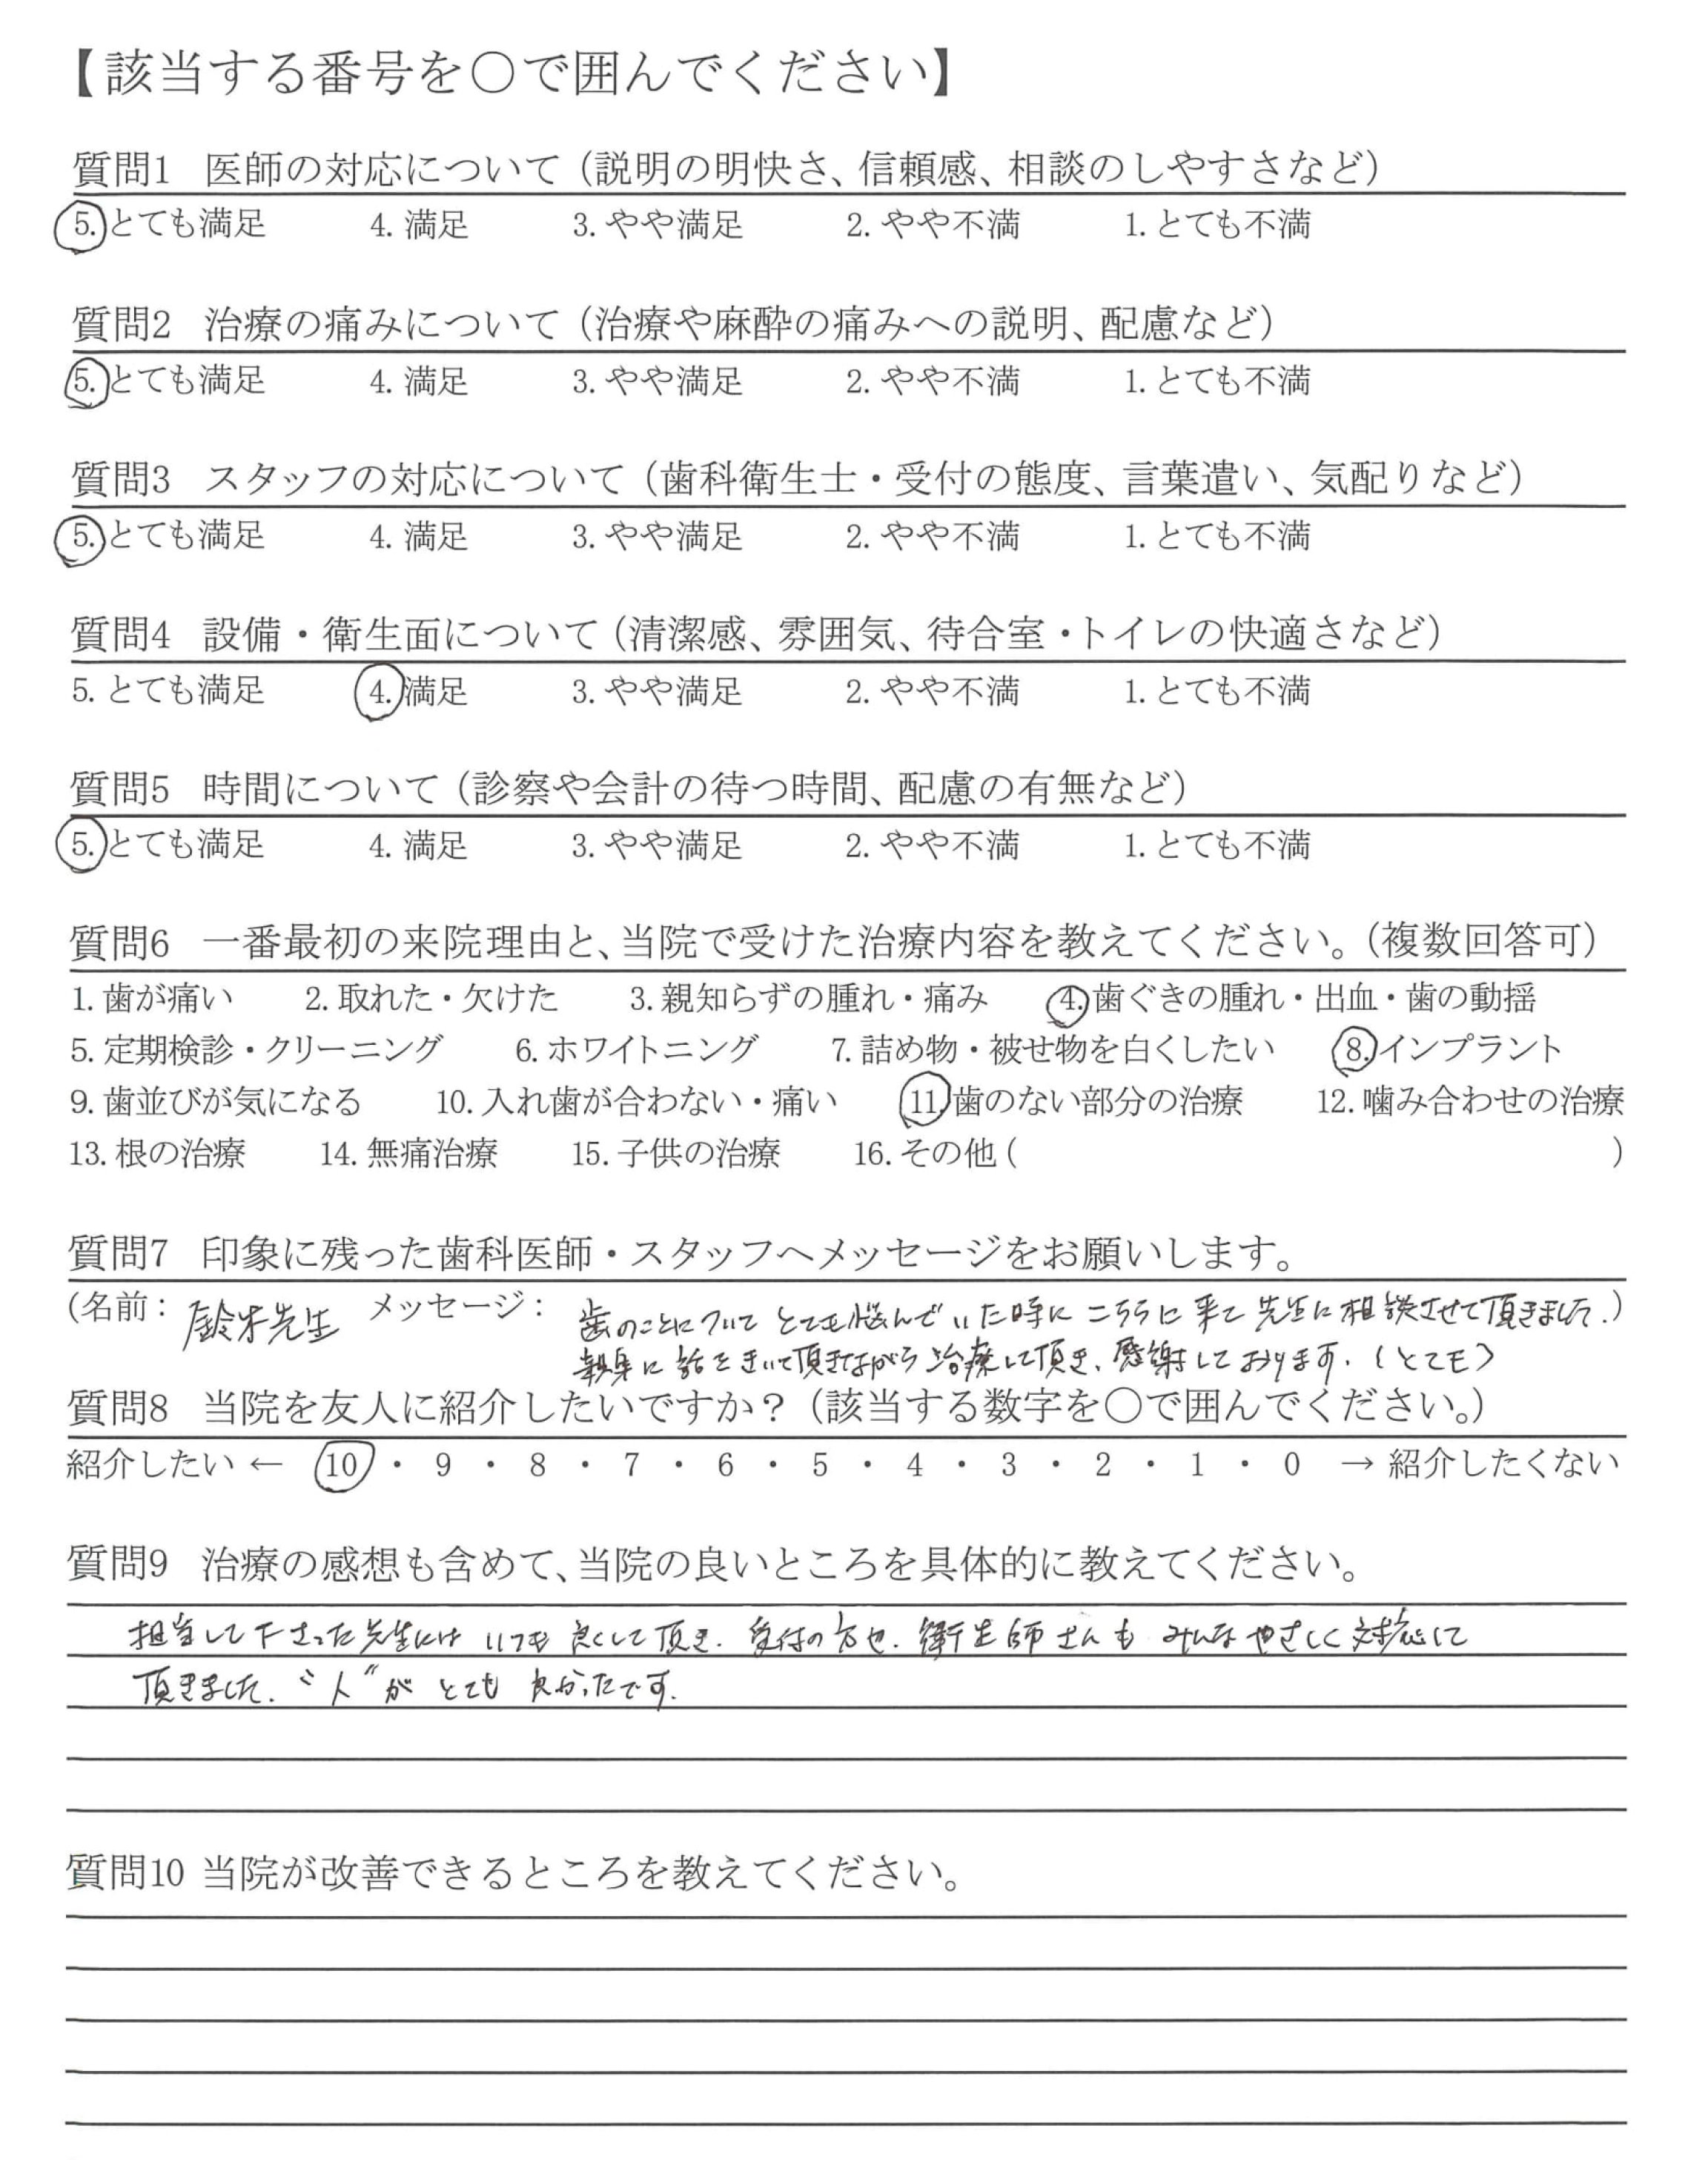 【該当する番号を○で囲んでください】
質問1 医師の対応について（説明の明快さ、信頼感、相談のしやすさなど）
5. とても満足 4. 満足 3. やや満足 2. やや不満 1. とても不満
質問2 治療の痛みについて（治療や麻酔の痛みへの説明、配慮など）
5. とても満足 4. 満足 3. やや満足 2. やや不満 1. とても不満
質問3 スタッフの対応について（歯科衛生士・受付の態度、言葉遣い、気配りなど）
5. とても満足 4. 満足 3. やや満足 2. やや不満 1. とても不満
質問4 設備・衛生面について（清潔感、雰囲気、待合室・トイレの快適さなど）
5. とても満足 4. 満足 3. やや満足 2. やや不満 1. とても不満
質問5 時間について（診察や会計の待つ時間、配慮の有無など）
5. とても満足 4. 満足 3. やや満足 2. やや不満 1. とても不満
質問6 一番最初の来院理由と、当院で受けた治療内容を教えてください。（複数回答可）
1. 歯が痛い 2. 取れた・欠けた 3. 親知らずの腫れ・痛み 4. 歯ぐきの腫れ・出血・歯の動揺
5. 定期検診・クリーニング 6. ホワイトニング 7. 詰め物・被せ物を白くしたい 8. インプラント
9. 歯並びが気になる 10. 入れ歯が合わない・痛い 11. 歯のない部分の治療 12. 噛み合わせの治療
13. 根の治療 14. 無痛治療 15. 子供の治療 16. その他 ( )
質問7 印象に残った歯科医師・スタッフへメッセージをお願いします。
（名前： 鈴木先生 メッセージ： 歯のことについて とても悩んでいた時に こちらに来て 先生に相談させて頂きました.）
親身に 話をきいて頂きながら 治療して頂き、感謝しております.（とても）
質問8 当院を友人に紹介したいですか？（該当する数字を○で囲んでください。）
紹介したい ← 10 ・ 9 ・ 8 ・ 7 ・ 6 ・ 5 ・ 4 ・ 3 ・ 2 ・ 1 ・ 0 → 紹介したくない
質問9 治療の感想も含めて、当院の良いところを具体的に教えてください。
担当して下さった先生には いつも 良くして頂き. 受付の方も. 衛生師さんも みんな やさしく 対応して
頂きました. “人”が とても 良かったです.
質問10 当院が改善できるところを教えてください。